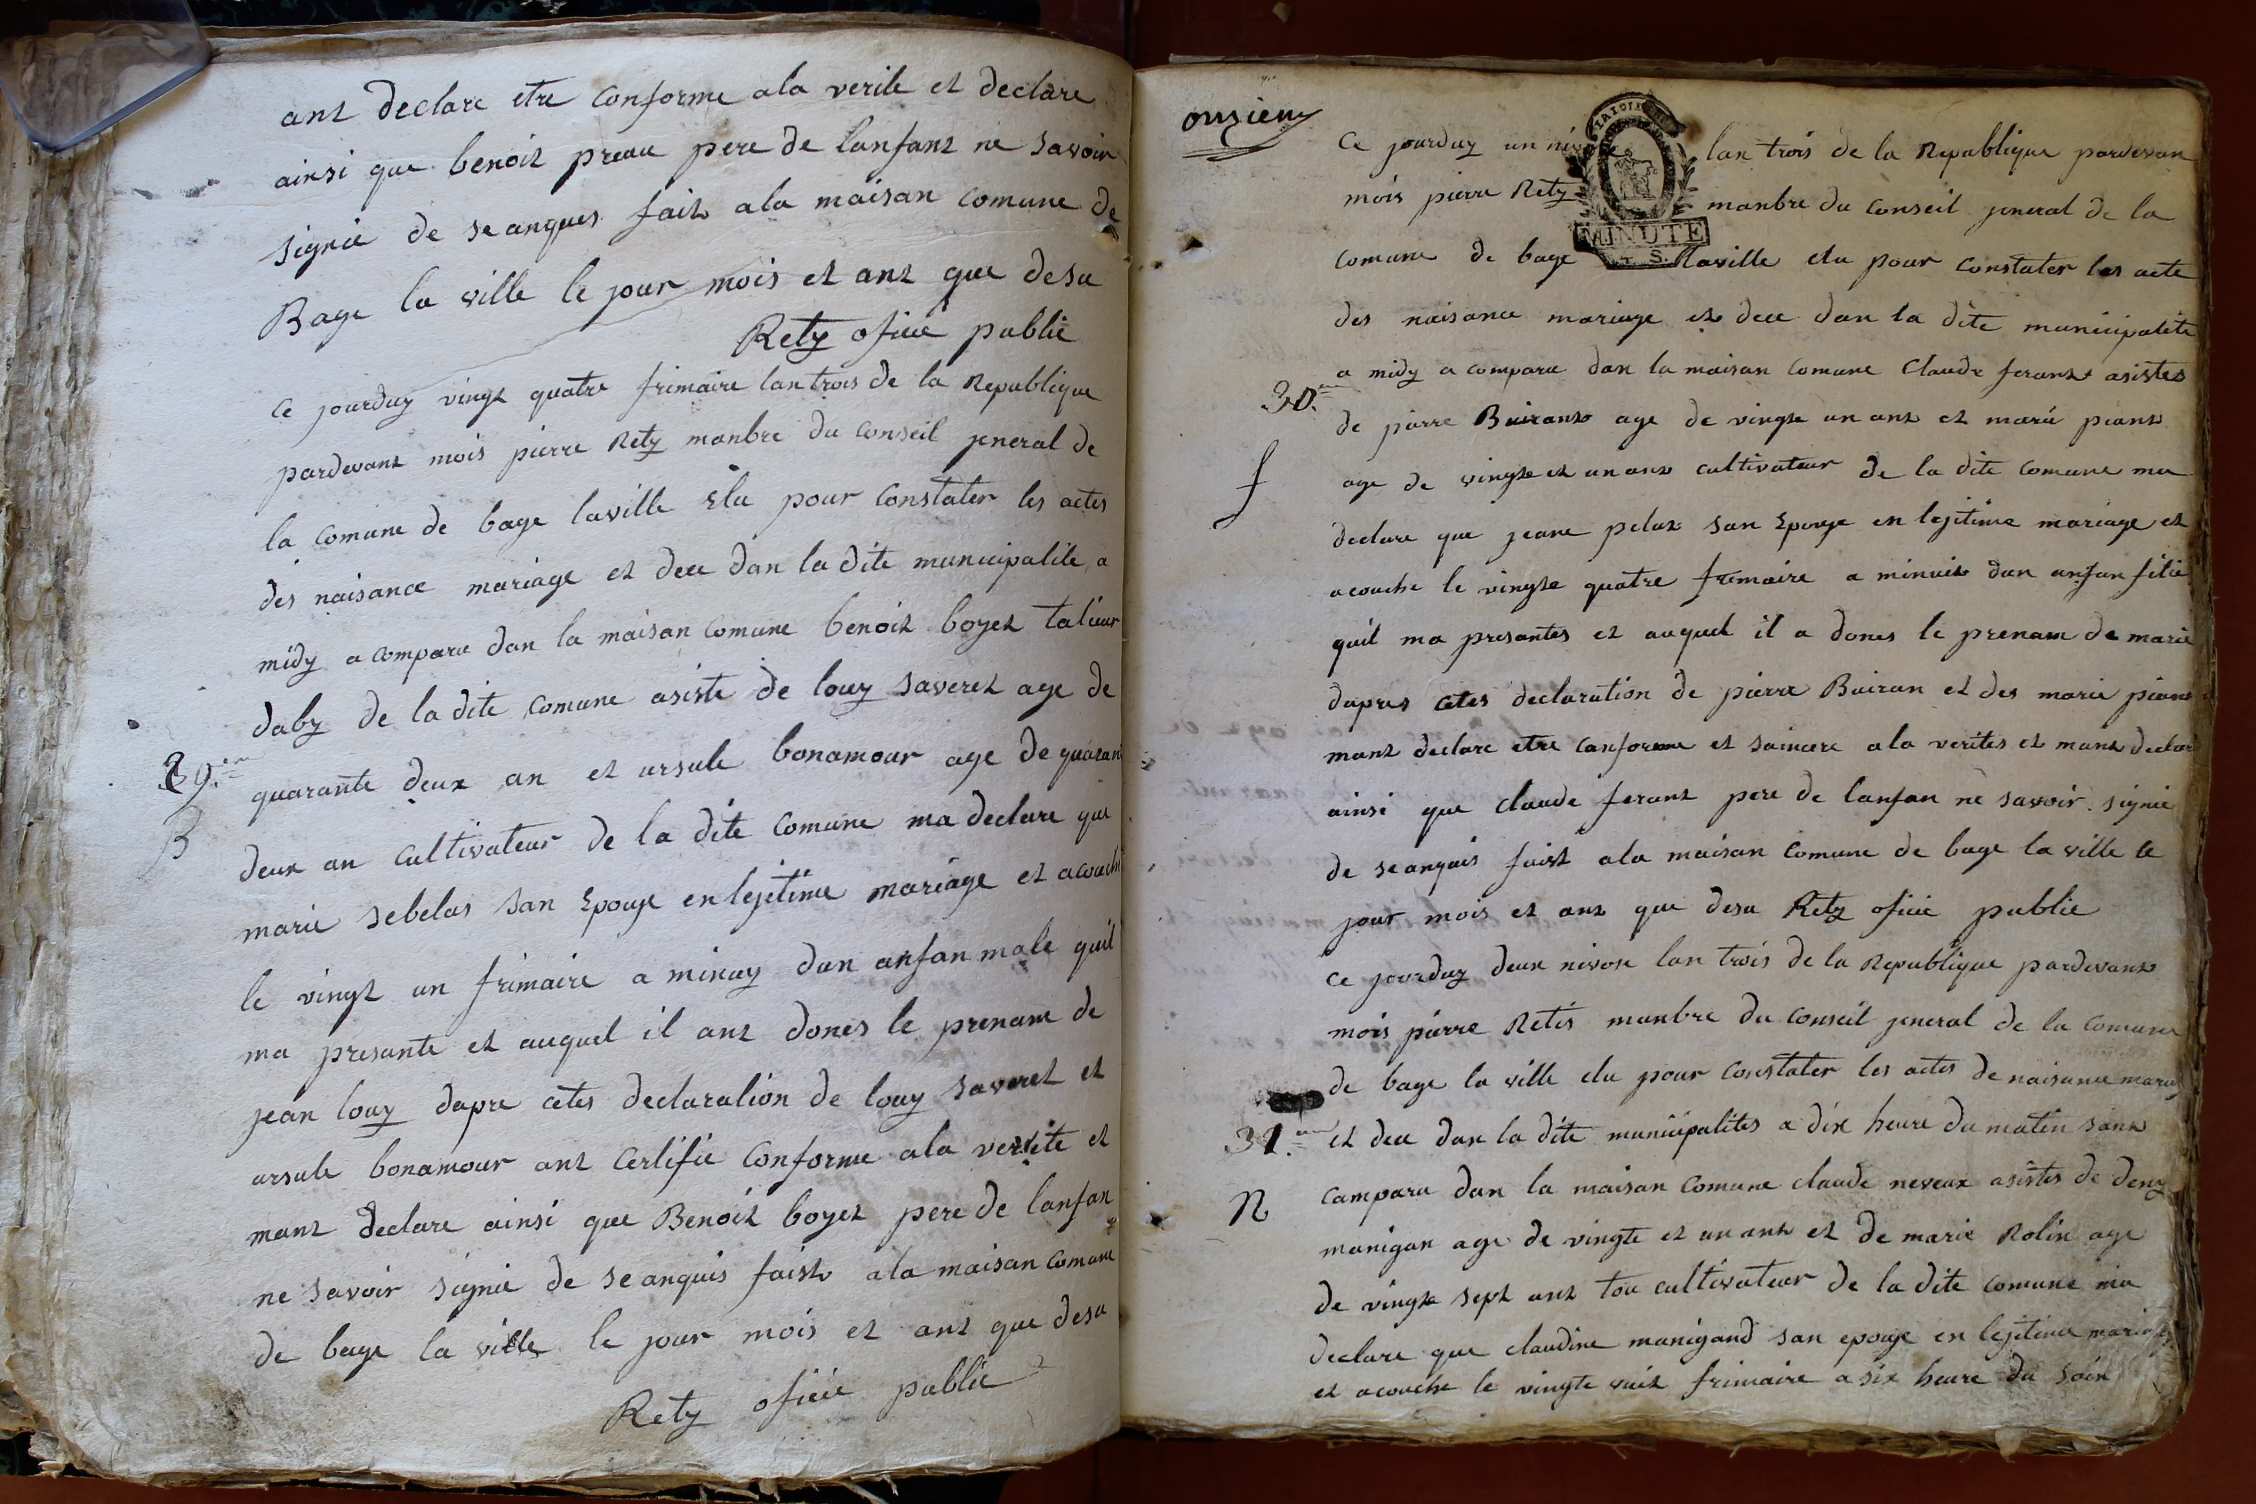 ant declare etre conforme ala verite et declare
ainsi que benoit preau pere de lanfant ne savoir
signié de seanques fait ala maisan comune de
Bage la ville le jour mois et ant que desu
Rety oficié public
ce jourduy vingt quatre frimaire lan trois de la Republique
pardevant mois pierre Rety manbre du conseil jeneral de
la comune de bage laville Elu pour constater les actes
des naisance mariage et decé dan la dite municipalite a
midy a comparu dan la maisan comune benoit boyet talieur
daby de la dite comune asiste de louy saveret age de
39.
quarante deux an et ursule bonamour age de quarante
B
deux an cultivateur de la dite comune ma declare que
marie sebelas san Epouze en lejitime mariage et acouché
le vingt un frimaire a minuy dun anfan male quil
ma presante et auquel il ant dones le prenam de
jean louy dapre cetes declaration de louy saveret et
ursule bonamour ant certifié conforme ala verite et
mant declare ainsi que Benoit boyet pere de lanfan
ne savoir signié de seanquis faist ala maisan comune
de bage la ville le jour mois et ant que desu
Rety oficié public
onzieme
ce jourduy un lan trois de la Republique pardevan
mois pierre Rety manbre du conseil jeneral de la
MINUTE
comune de bage laville elu pour constater les acte
des naisance mariage et decé dan la dite municipalite
a midy a comparu dan la maisan comune Claude ferant asistes
30.
de pierre Buirant age de vingte un ant et marié piant
f
age de vingte et un ant cultivateur de la dite comune ma
declare que jeane pelux san Epouze en lejitime mariage et
acouche le vingte quatre frimaire a minuit dun anfan filie
quil ma presantes et auquel il a dones le prenam de marie
dapres cetes declaration de pierre Buiran et des marie piant
mant declare etre canforme et saincere ala verites et mant declare
ainsi que claude ferant pere de lanfan ne savoir signié
de seanquis faist ala maisan comune de bage la ville le
jour mois et ant que desu Rety oficié public
ce jourduy deux nivose lan trois de la Republique pardevant
mois pierre Retis manbre du conseil jeneral de la comune
de bage la ville elu pour constater les actes de naisance mariage
31.
et decé dan la dite municipalites a dix heure du matin sant
N
camparu dan la maisan comune claude neveux asistes de deny
manigan age de vingte et un ant et de marie Rolin age
de vingte sept ant tou cultivateur de la dite comune ma
declare que claudine manigand san epouze en lejitime mariage
et acouche le vingte vuit frimaire a six heure du soir